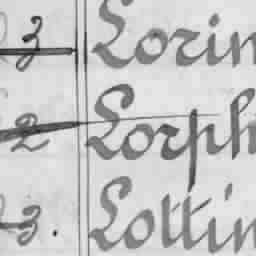 3 Lorin
2 Lorph
3. Lottin